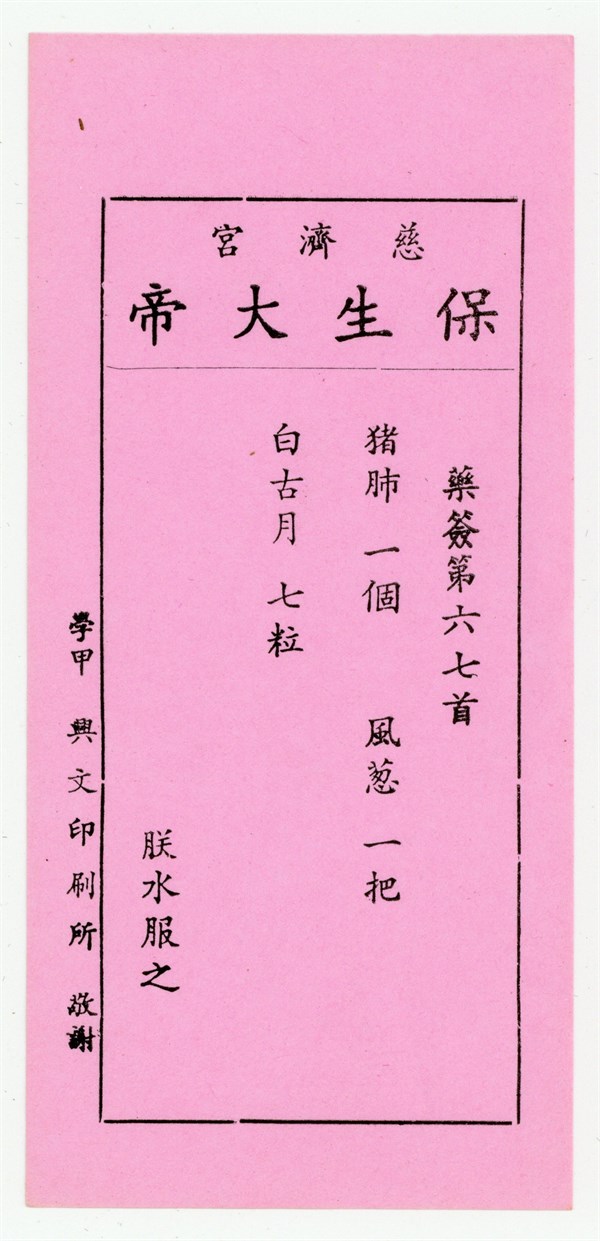 慈濟宮
保生大帝
藥簽第六七首
猪肺 一個 風葱 一把
白古月 七粒
朕水服之
學甲 興文印刷所 敬謝